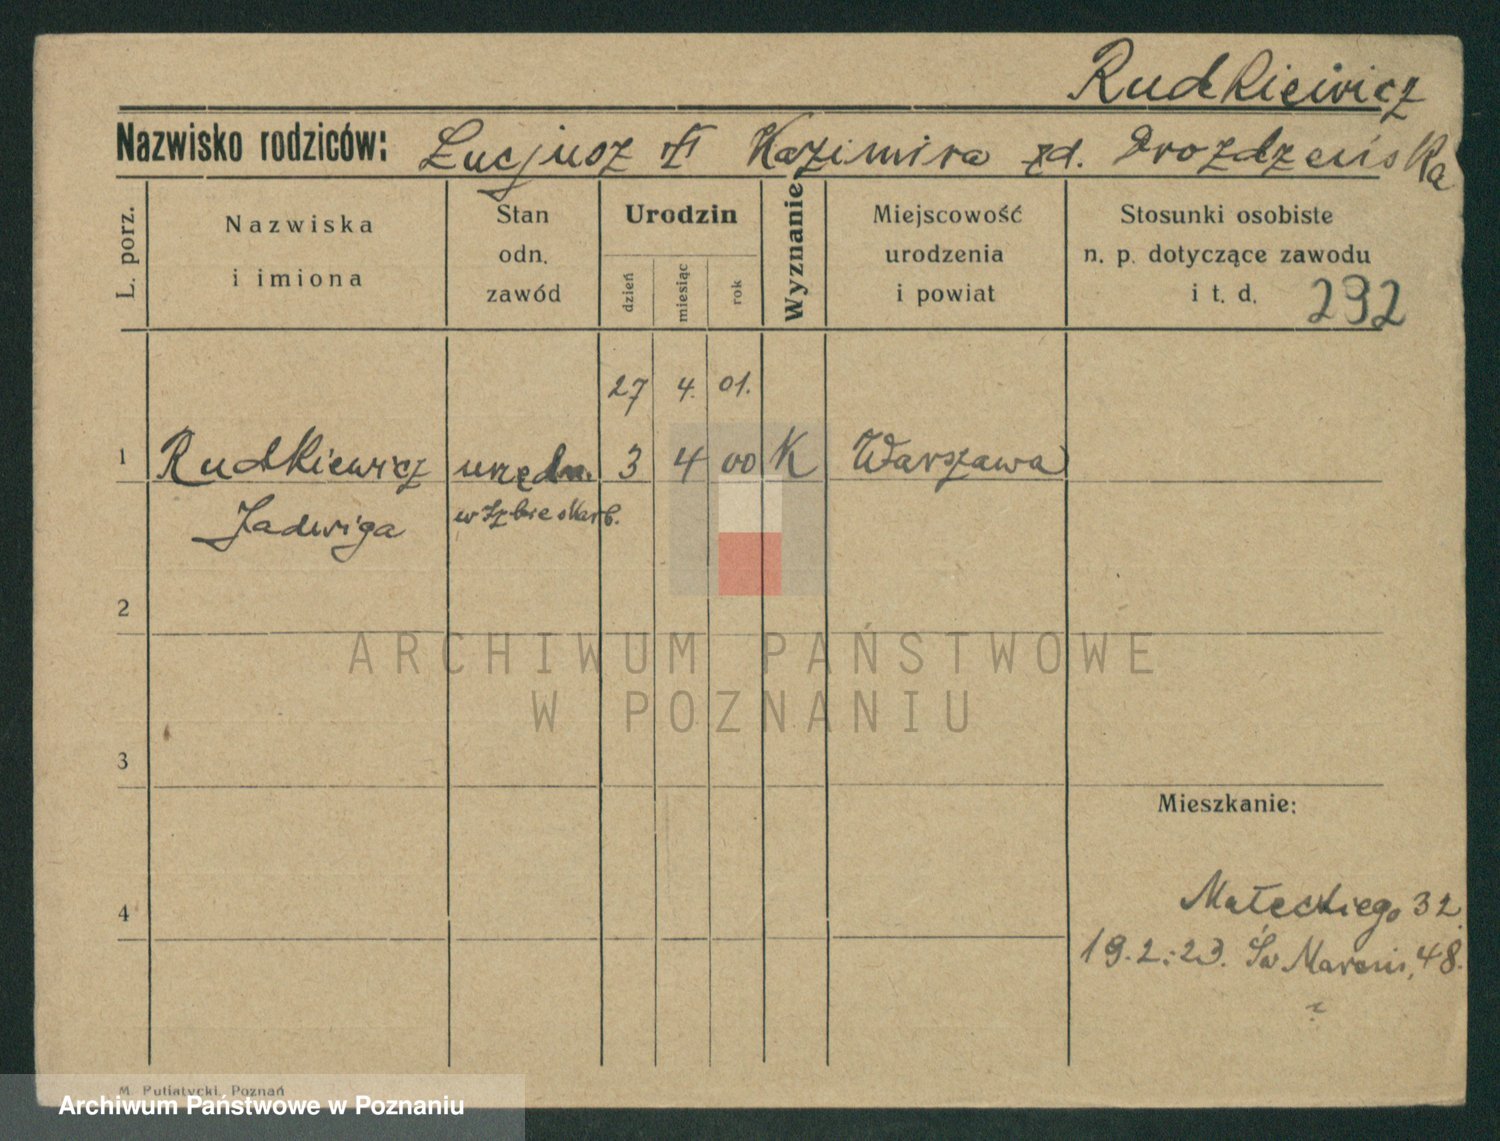 Rudkiewicz
Nazwisko rodziców: Lucjusz i Kazimira zd. Drozdzeńska
L. porz.
Nazwiska
i imiona
Stan
odn.
zawód
Urodzin
dzień
miesiąc
rok
Wyznanie
Miejscowość
urodzenia
i powiat
Stosunki osobiste
n. p. dotyczące zawodu
i t. d. 292
27 4. 01.
1 Rudkiewicz urzędn. 3 4 00 K Warszawa
Jadwiga w Izbie skarb.
2
ARCHIWUM PAŃSTWOWE
W POZNANIU
3
Mieszkanie:
4
Małeckiego 32.
19.2.23. Św Marcin, 48.
M. Putiatycki, Poznań
Archiwum Państwowe w Poznaniu